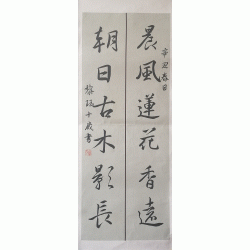 辛丑春日
晨風蓮花香遠
朝日古木影長
十歲書